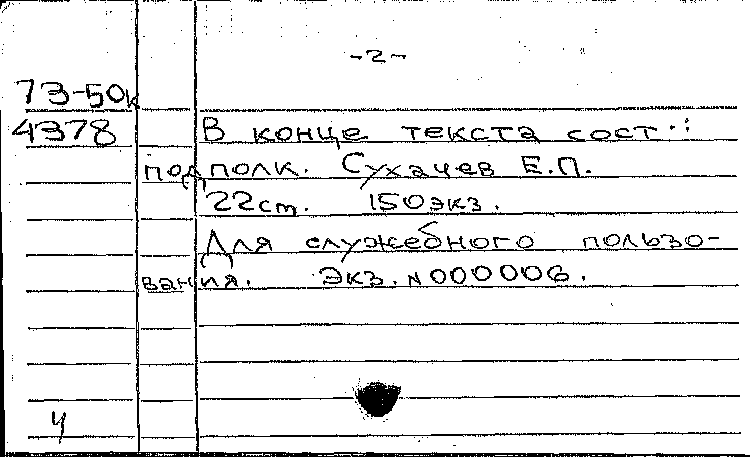 -2-
73-50к
4378 В конце текста сост.:
подполк. Сухачев Е.П.
22 ст. 150 экз.
Для служебного пользо-
вания. Экз. N 000006.
4